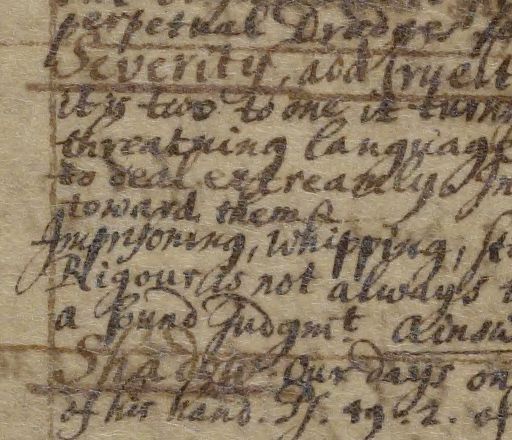 perpetual Drudges
Severity, and Cruelt
it is two to one it turn
threatning language
to deal extreamly. In
toward them
Imprisoning, whipping, st
Rigour is not always t
a sound Judgmt. Ainsw
Shadow. Our days on
of his hand. Is. 49. 2. of